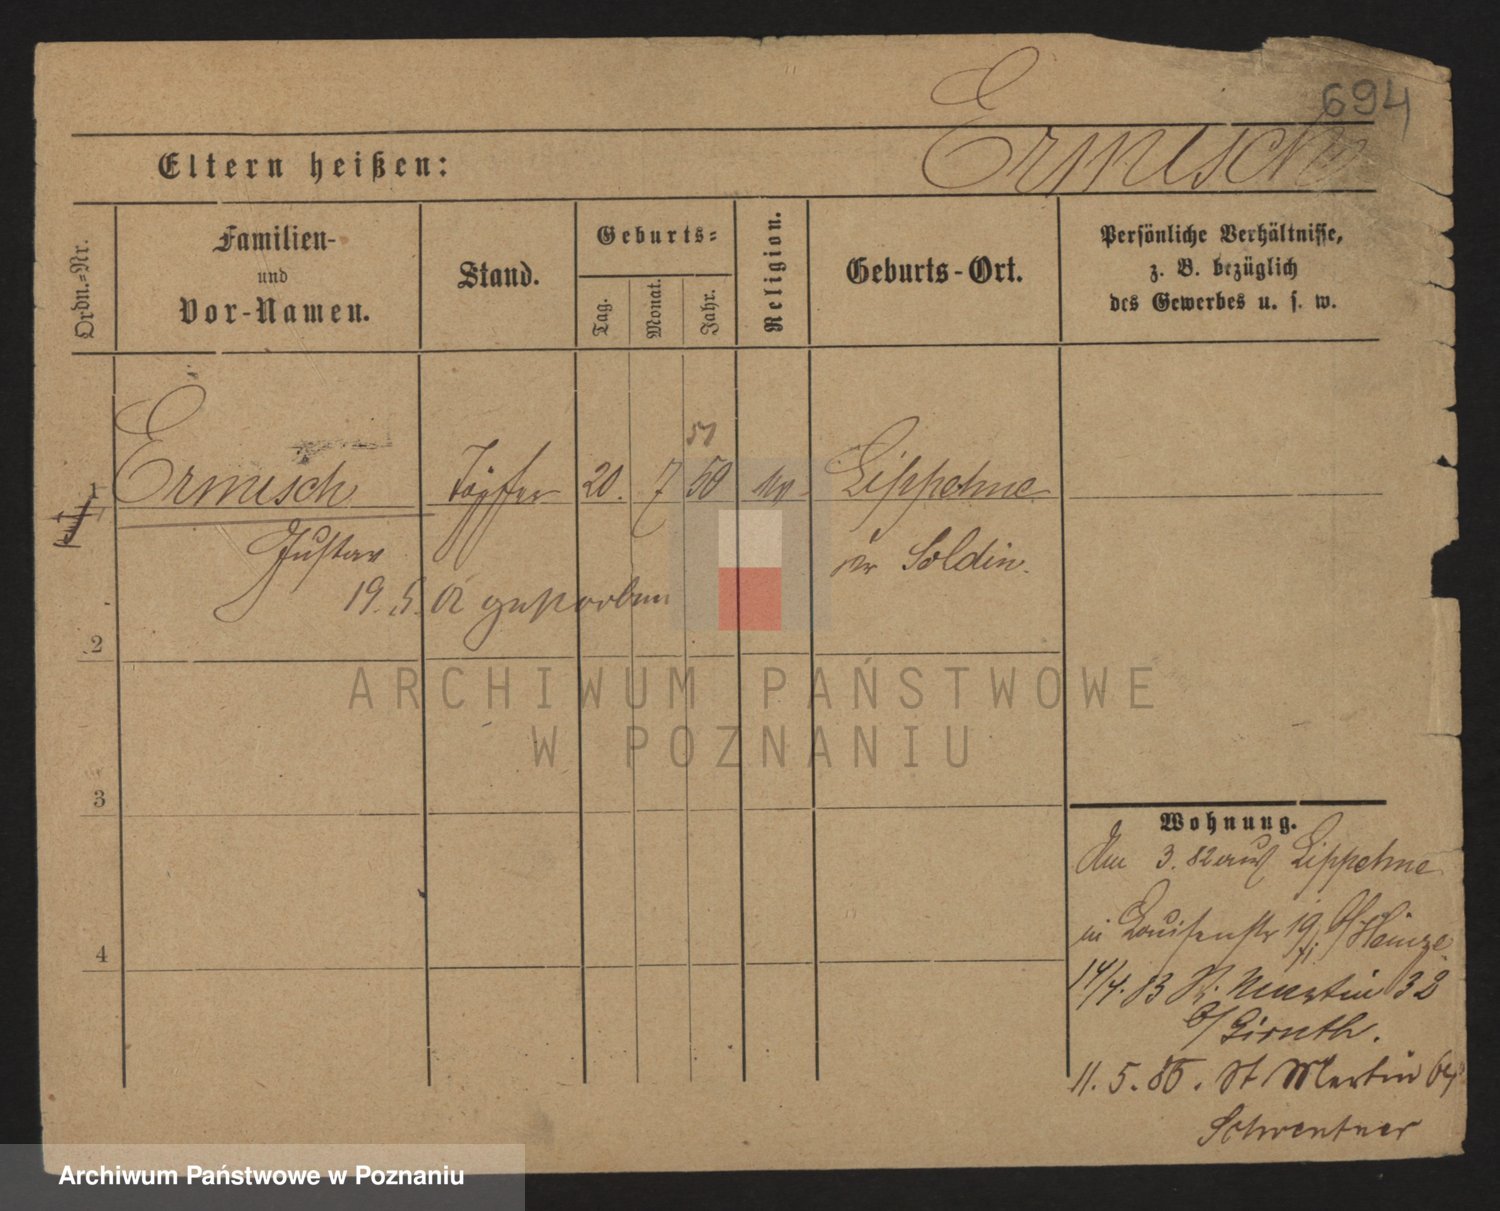 694
Ermisch
Eltern heißen:
Ordn.-Nr.
Familien-
und
Vor-Namen.
Stand.
Geburts-
Tag.
Monat.
Jahr.
Religion.
Geburts-Ort.
Persönliche Verhältnisse,
z. B. bezüglich
des Gewerbes u. s. w.
51
1 Ermisch Töpfer 20. 7 50 Lippehne
Gustav Soldin.
19. 5. gestorben
2
ARCHIWUM PAŃSTWOWE
W POZNANIU
3
Wohnung.
3. 82 aus Lippehne
in Louisenstr 19 b/ Heinze
4
14/4. 83 St. Martin 32
b/
11. 5. 85. St Martin
Schwentner
Archiwum Państwowe w Poznaniu